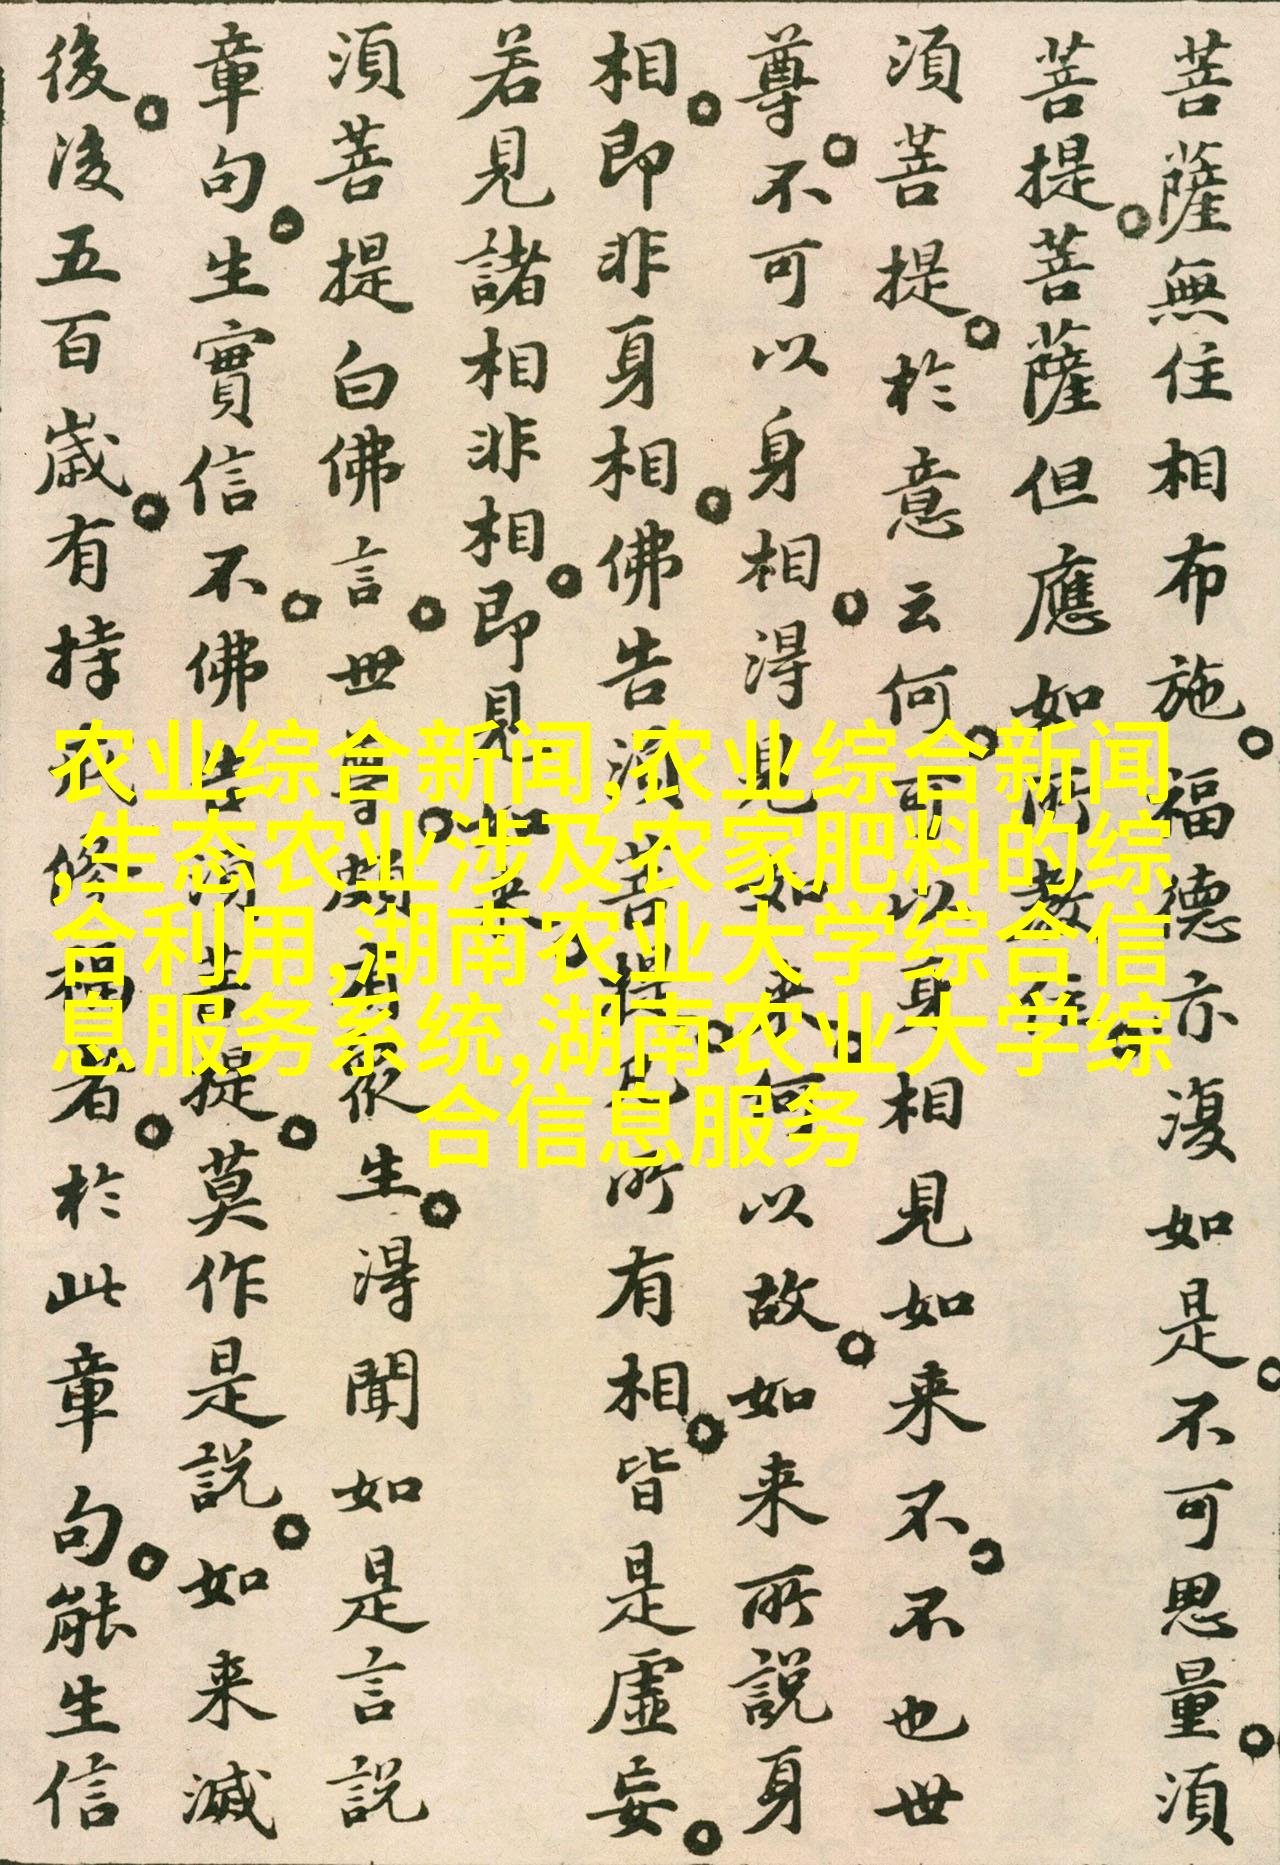 菩薩無住相布施。福德亦復如是。不可思量。須
菩提。菩薩但應如所教住。
須菩提。於意云何。可以身相見如来不。不也世
尊。不可以身相。得見如来。何以故。如来所說身
相。即非身相。佛告須菩提。凡所有相。皆是虛妄。
若見諸相非相。即見如来。
須菩提白佛言。世尊。頗有眾生。得聞如是言說
章句。生實信不。佛告須菩提。莫作是說。如来滅
後。後五百歲。有持戒修福者。於此章句。能生信
农业综合新闻,农业综合新闻
,生态农业涉及农家肥料的综
合利用,湖南农业大学综合信
息服务系统,湖南农业大学综
合信息服务